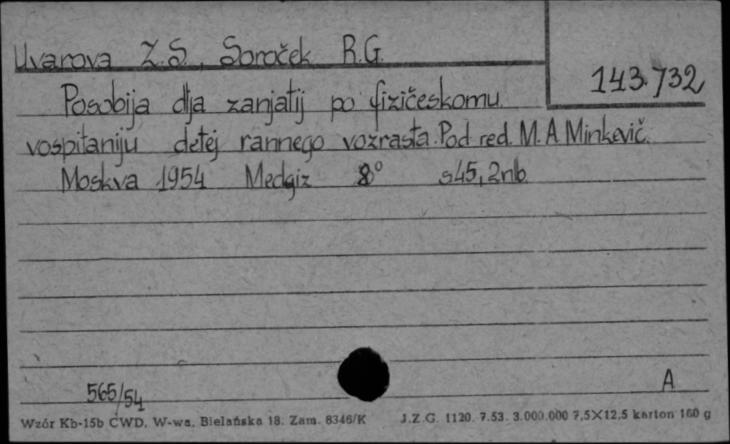 Uvarova Z.S., Soroček R.G.
143.732
Posobija dlja zanjatij po fizičeskomu
vospitaniju detej rannego vozrasta. Pod red. M.A. Minkevič.
Moskva 1954 Medgiz 8° s 45, 2 nlb.
565/54
A
Wzór Kb-15b CWD. W-wa, Bielańska 18. Zam. 8346/K J.Z.G. 1120. 7.53. 3.000.000 7,5×12,5 karton 160 g